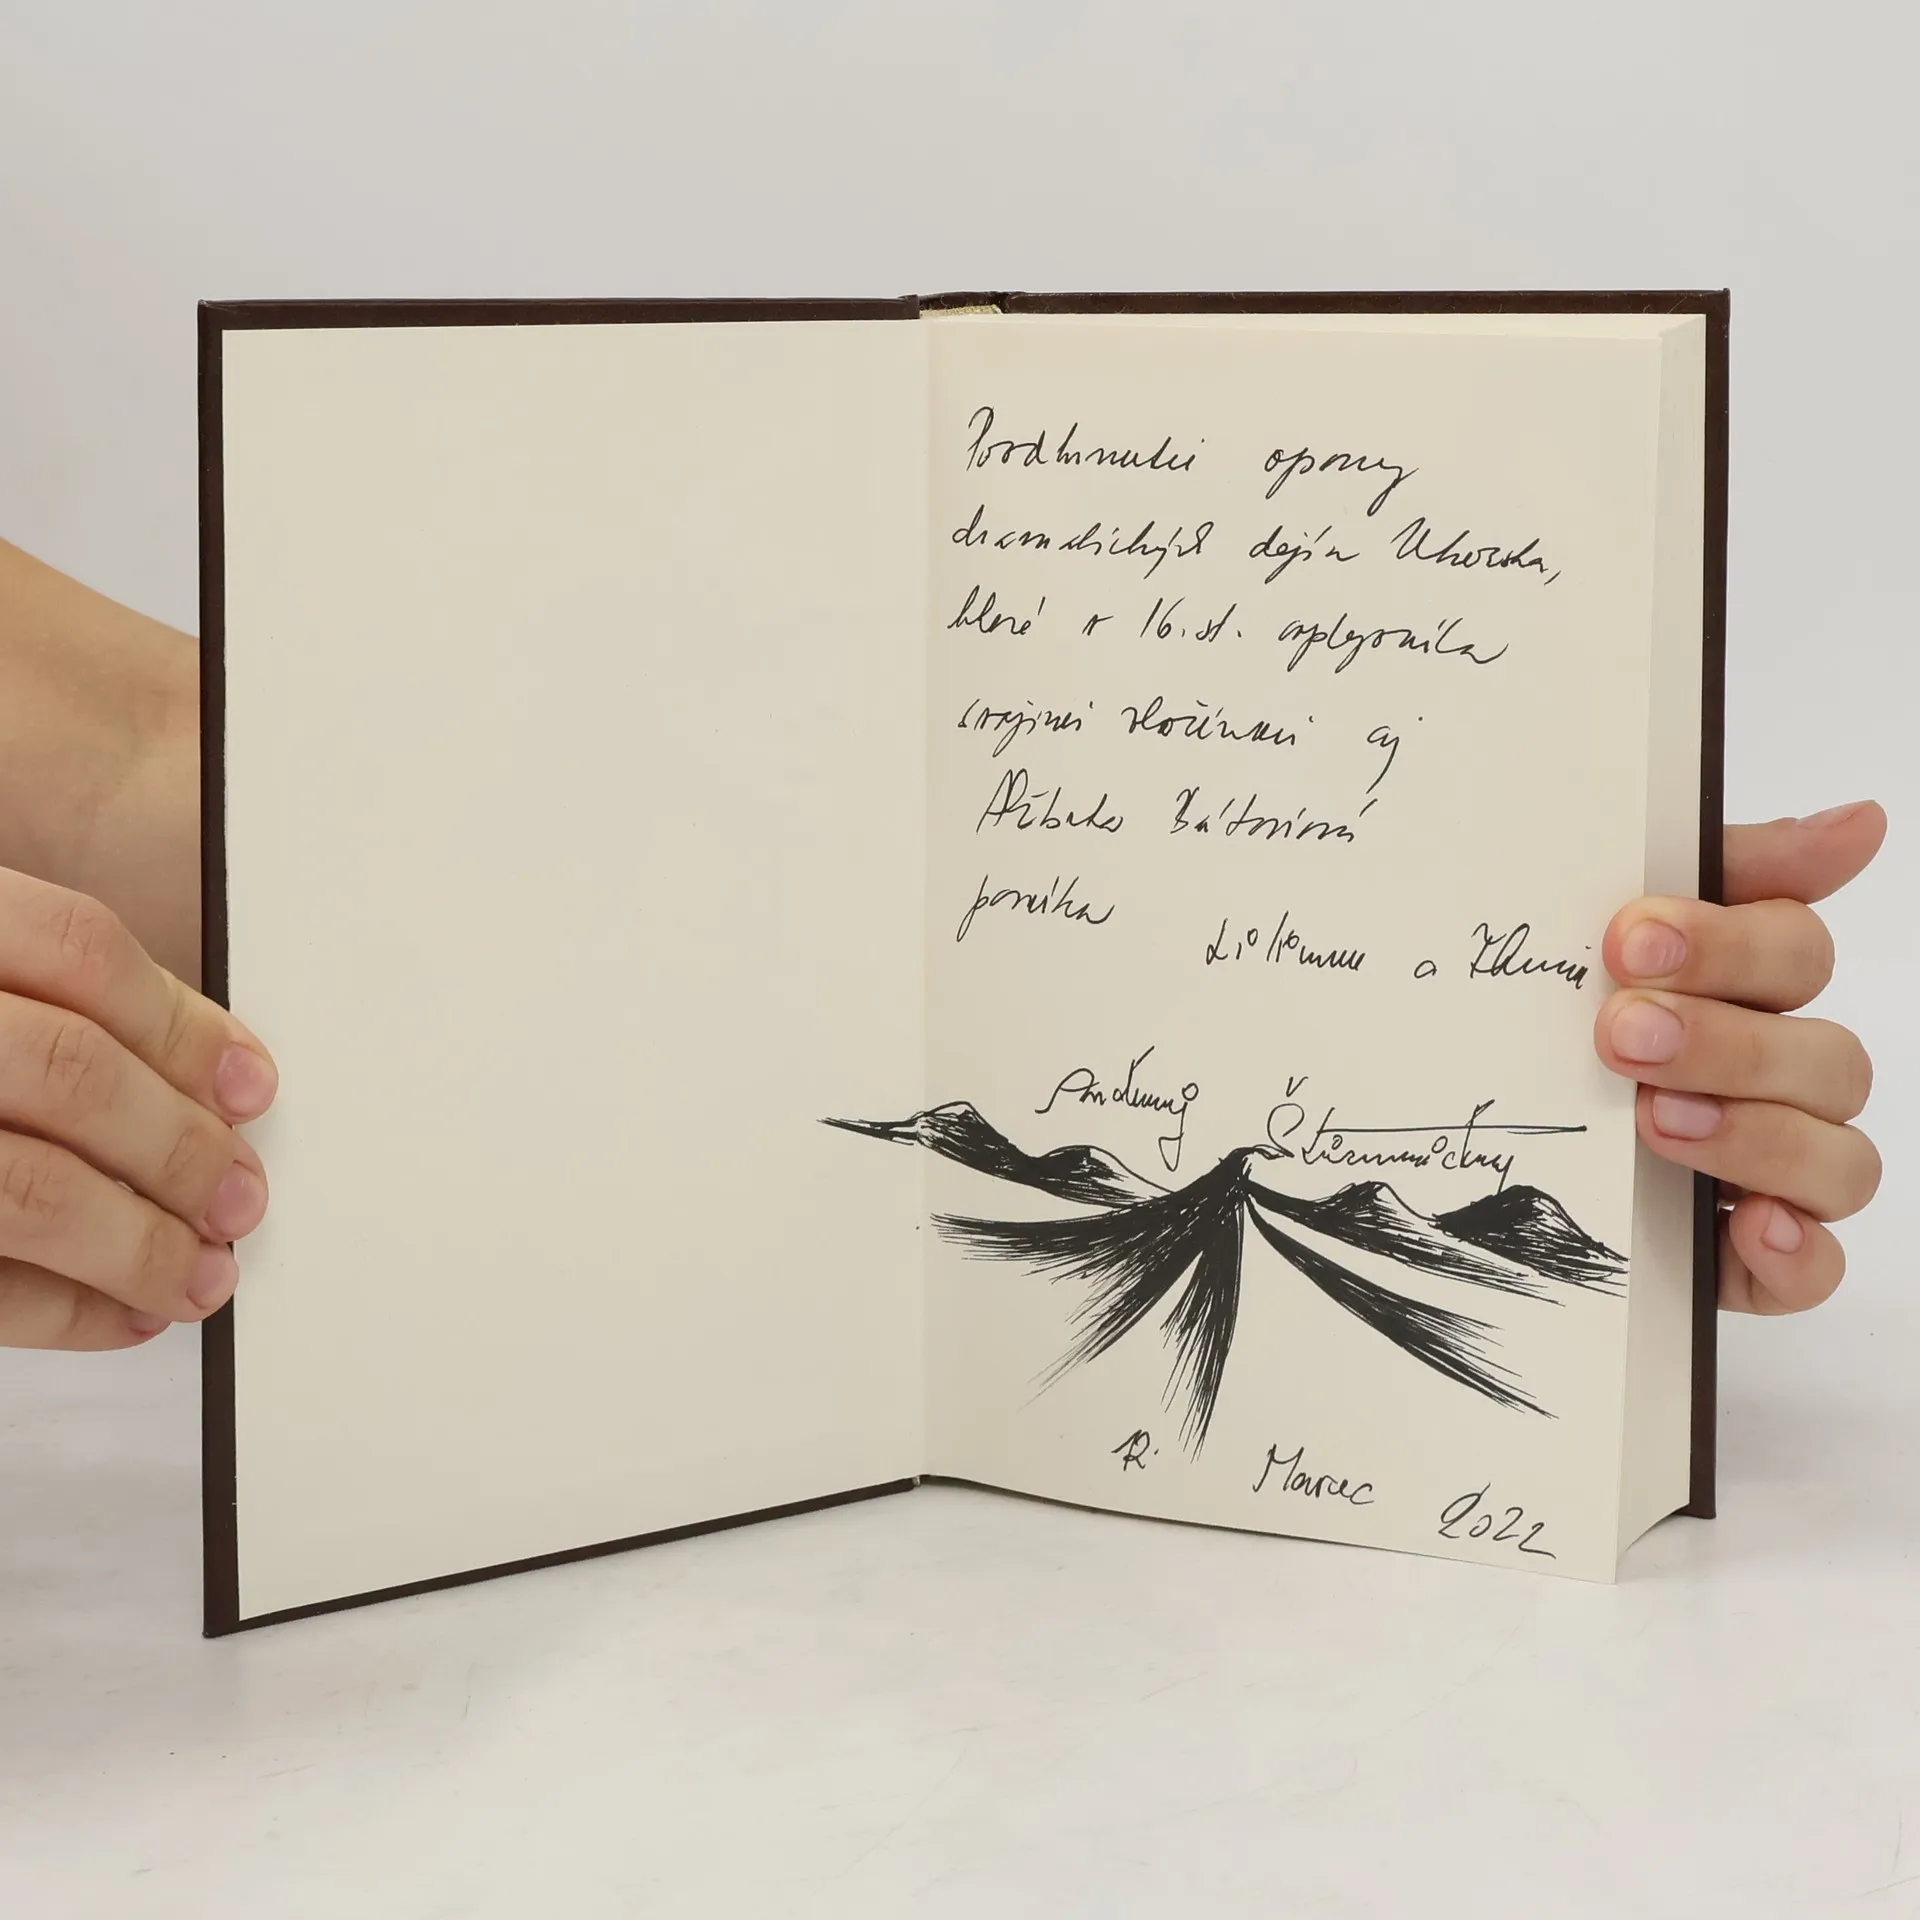 Poodhrnutie opony
dramatických dejín Uhorska,
ktoré v 16. st. ovplyvnila
svojimi zločinmi aj
Alžbeta Bátoriová
ponúka
a
Andrej Štiavnický
R. Marec 2022